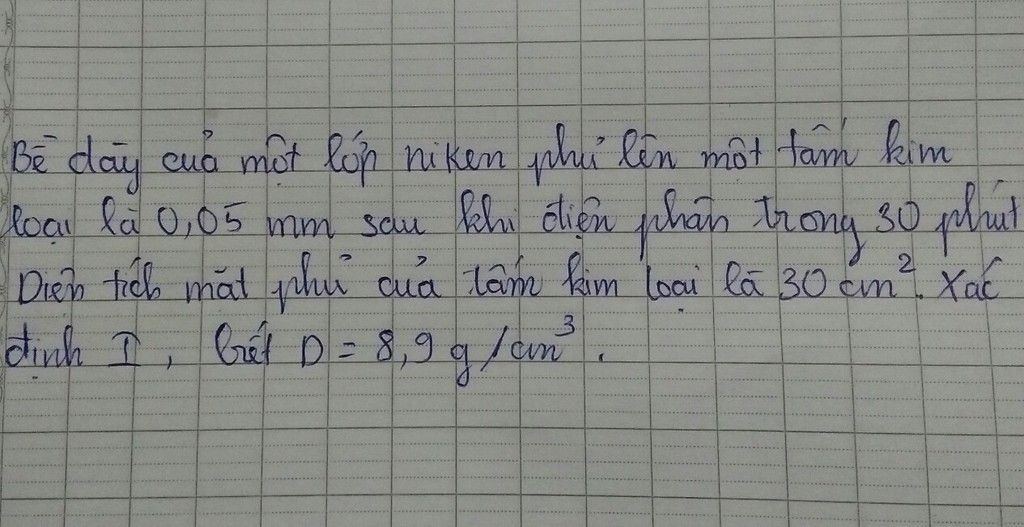 Bề dày của một lớp niken phủ lên một tấm kim
loại là 0,05 mm sau khi điện phân trong 30 phút
Diện tích mặt phủ của tấm kim loại là 30 cm². Xác
định I, biết D = 8,9 g/cm³.